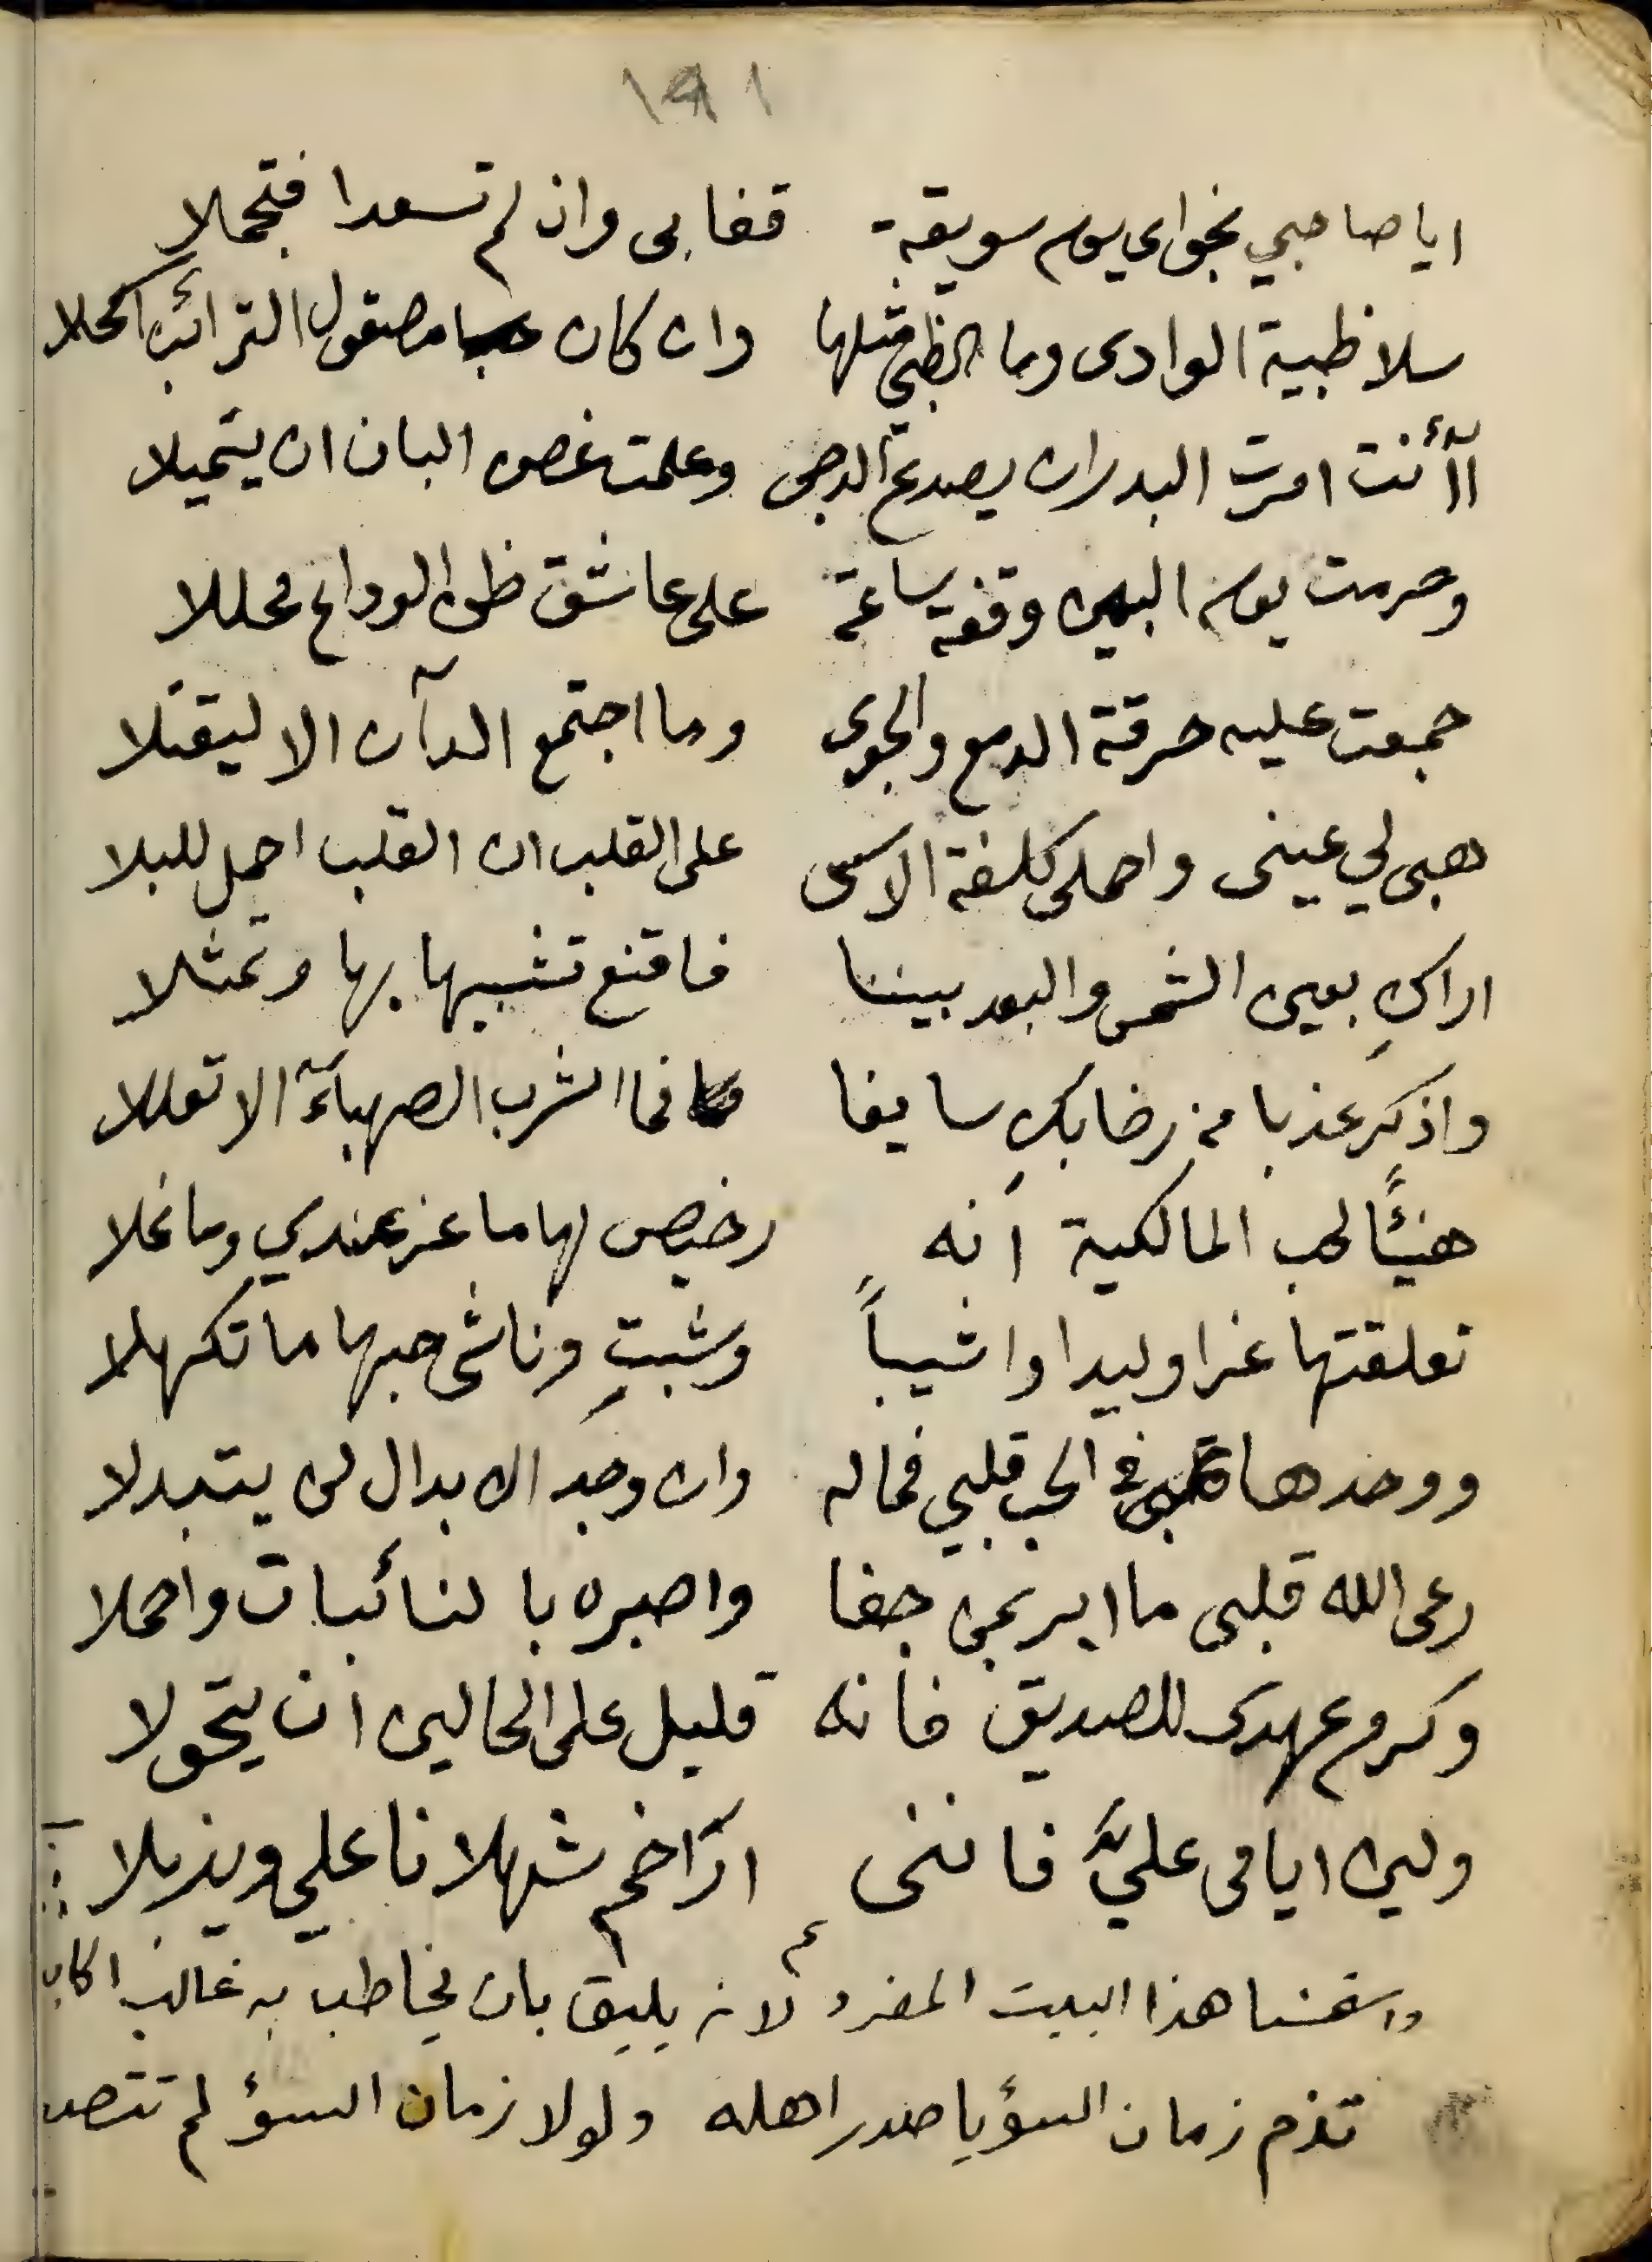 ١٩١
ايا صاحبي نجواي يوم سويقة قفا بى وان لم تسعدا فتجملا
سلا ظبية الوادى وما الظبي مثلها وان كان مصقول الترائب اكحلا
أأنت امرت البدر ان يصدع الدجى وعلمت غصن البان ان يتميلا
وحرمت يوم البين وقفة ساعة على عاشق ظن الوداع محللا
جمعت عليه حرقة الدمع والجوى وما اجتمع الدآن الا ليقتلا
هبى لي عينى واحملى كلفة الاسى على القلب ان القلب احمل للبلا
اراكِ بعين الشمس والبعد بيننا فاقنع تشبيها بها وتمثلا
واذكر عذبا من رضابكِ سايغا فما اشرب الصهبآء الا تعللا
هنيئًا لحب المالكية انه رخيص لها ما عز عندي وما غلا
تعلقتها غرا وليدا واشيباً وشبتِ وناشى حبها ما تكهلا
ووحدها في الحب قلبي فماله وان وجد الابدال لن يتبدلا
رعى الله قلبى ما ابر بمن جفا واصبره بالنائبات واحملا
وكرم عهدى للصديق فانه قليل على الحالين ان يتحولا
ولين ايامى عليَّ فاننى ازاخم شهلانا علي ويذبلا
هذا البيت المفرد لانه يليق بان يخاطب به غالب
تذم زمان السؤ يا صدر اهله ولولا زمان السؤ لم تتصد